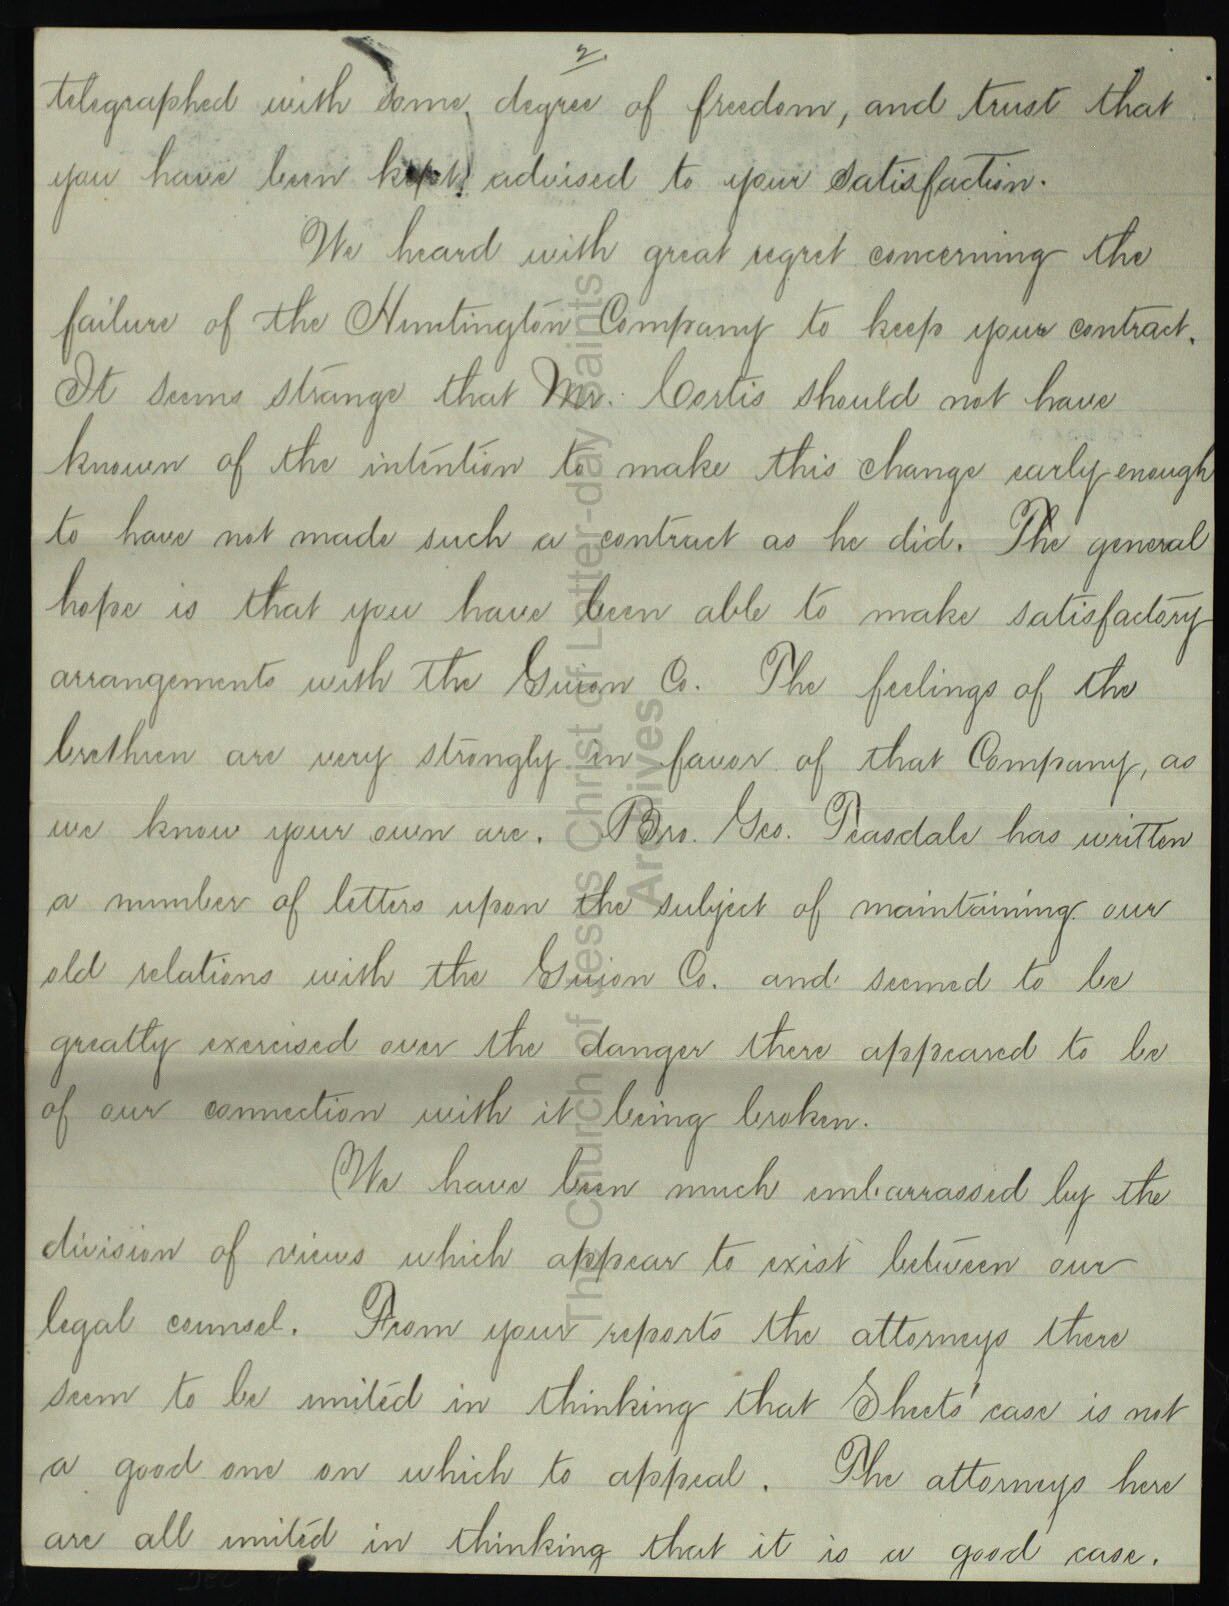 2.
telegraphed with some degree of freedom, and trust that
you have been kept advised to your satisfaction.
We heard with great regret concerning the
failure of the Huntington Company to keep your contract.
It seems strange that Mr. Cortis should not have
known of the intention to make this change early enough
to have not made such a contract as he did. The general
hope is that you have been able to make satisfactory
arrangements with the Guion Co. The feelings of the
brethren are very strongly in favor of that Company, as
we know your own are. Bro. Geo. Teasdale has written
a number of letters upon the subject of maintaining our
old relations with the Guion Co. and seemed to be
greatly exercised over the danger there appeared to be
of our connection with it being broken.
We have been much embarrassed by the
division of views which appear to exist between our
legal counsel. From your reports the attorneys there
seem to be united in thinking that Sheets' case is not
a good one on which to appeal. The attorneys here
are all united in thinking that it is a good case.
The Church of Jesus Christ of Latter-day Saints
Archives